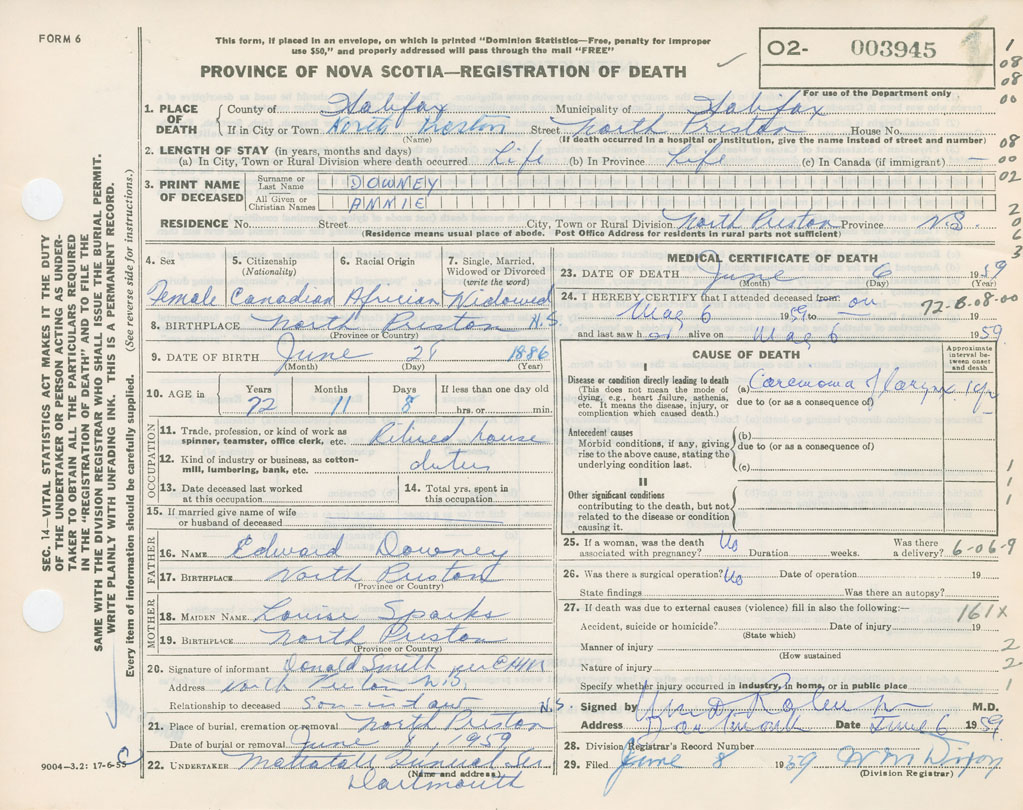 FORM 6
This form, if placed in an envelope, on which is printed "Dominion Statistics—Free, penalty for improper
use $50," and properly addressed will pass through the mail "FREE"
PROVINCE OF NOVA SCOTIA—REGISTRATION OF DEATH
02- 003945
For use of the Department only
1
08
08
00
08
00
02
2
0
6
3
SEC. 14—VITAL STATISTICS ACT MAKES IT THE DUTY
OF THE UNDERTAKER OR PERSON ACTING AS UNDER-
TAKER TO OBTAIN ALL THE PARTICULARS REQUIRED
IN THE "REGISTRATION OF DEATH" AND TO FILE THE
SAME WITH THE DIVISION REGISTRAR WHO SHALL ISSUE THE BURIAL PERMIT.
WRITE PLAINLY WITH UNFADING INK. THIS IS A PERMANENT RECORD.
Every item of information should be carefully supplied. (See reverse side for instructions.)
1. PLACE OF DEATH County of Halifax Municipality of Halifax
If in City or Town North Preston Street North Preston House No.
(Name) (If death occurred in a hospital or institution, give the name instead of street and number)
2. LENGTH OF STAY (in years, months and days)
(a) In City, Town or Rural Division where death occurred Life (b) In Province Life (c) In Canada (if immigrant) —
3. PRINT NAME OF DECEASED
Surname or Last Name DOWNEY
All Given or Christian Names ANNIE
RESIDENCE No. Street City, Town or Rural Division North Preston Province N.S.
(Residence means usual place of abode. Post Office Address for residents in rural parts not sufficient)
4. Sex Female
5. Citizenship (Nationality) Canadian
6. Racial Origin African
7. Single, Married, Widowed or Divorced (write the word) Widowed
8. BIRTHPLACE North Preston N.S.
(Province or Country)
9. DATE OF BIRTH June 1886
(Month) (Day) (Year)
10. AGE in Years 72 Months 11 Days 8 If less than one day old hrs. or min.
OCCUPATION
11. Trade, profession, or kind of work as spinner, teamster, office clerk, etc. Retired house
12. Kind of industry or business, as cotton-mill, lumbering, bank, etc. duties
13. Date deceased last worked at this occupation
14. Total yrs. spent in this occupation
15. If married give name of wife or husband of deceased
FATHER
16. NAME Edward Downey
17. BIRTHPLACE North Preston
(Province or Country)
MOTHER
18. MAIDEN NAME Louise Sparks
19. BIRTHPLACE North Preston
(Province or Country)
20. Signature of informant Donald Smith per
Address North Preston N.S.
Relationship to deceased son-in-law
21. Place of burial, cremation or removal North Preston N.S.
Date of burial or removal June 8, 1959
22. UNDERTAKER Mattatall Funeral Ser.
(Name and address)
Dartmouth
9004-3.2: 17-6-55
MEDICAL CERTIFICATE OF DEATH
23. DATE OF DEATH June 6 1959
(Month) (Day) (Year)
24. I HEREBY CERTIFY that I attended deceased from: on
May 6 1959 to — 19
72-B-08-00
and last saw h er alive on May 6 1959
CAUSE OF DEATH
Approximate interval between onset and death
I
Disease or condition directly leading to death
(This does not mean the mode of dying, e.g., heart failure, asthenia, etc. It means the disease, injury, or complication which caused death.)
(a) Carcinoma of larynx 1 yr
due to (or as a consequence of)
Antecedent causes
Morbid conditions, if any, giving rise to the above cause, stating the underlying condition last.
(b)
due to (or as a consequence of)
(c)
II
Other significant conditions
contributing to the death, but not related to the disease or condition causing it.
1
1
1
25. If a woman, was the death associated with pregnancy? No Duration weeks. Was there a delivery?
6-06-9
26. Was there a surgical operation? No Date of operation 19
State findings Was there an autopsy?
27. If death was due to external causes (violence) fill in also the following:—
161X
Accident, suicide or homicide? Date of injury 19
(State which)
Manner of injury 2
(How sustained
Nature of injury 2
Specify whether injury occurred in industry, in home, or in public place 1
Signed by M.D.
Address Dartmouth Date June 6 1959
28. Division Registrar's Record Number
29. Filed June 8 1959 W M Dixon
(Division Registrar)